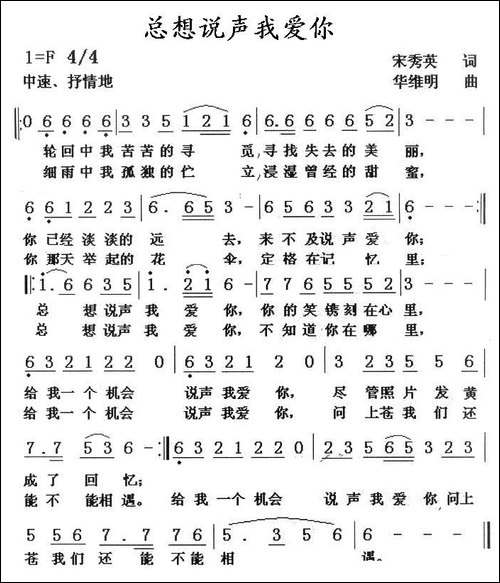 总想说声我爱你
1=F 4/4
宋秀英 词
中速、抒情地
华维明 曲
0 6 6 6 6 | 3 3 5 1 2 1 6 | 6. 6 6 6 6 6 5 2 | 3 - - - |
轮回中我 苦苦的寻 觅,寻找失去的美 丽,
细雨中我 孤独的伫 立,浸湿曾经的甜 蜜,
6 6 1 2 2 3 | 6. 6 5 3 - | 6 5 6 3 3 2 1 | 6 - - - :||
你已经淡淡的 远 去, 来不及说声爱 你;
你那天举起的 花 伞, 定格在记 忆 里;
||: 1. 6 6 3 5 | 1. 2 1 6 - | 7 7 6 5 5 5 2 | 3 - - - |
总 想说声我 爱 你, 你的笑镌刻在心 里,
总 想说声我 爱 你, 不知道你在哪 里,
6 3 2 1 2 2 0 | 3 2 3 2 1 2 0 | 3 3 2 1 2 3 |
给我一个机会 说声我爱你, 尽管照片发黄
给我一个机会 说声我爱你, 问上苍我们还
7. 7 5 3 6 - :|| 6 3 2 1 2 2 0 | 2 3 5 6 5 3 2 3 |
成了回忆;
能不能相遇。给我一个机会 说声我爱你问上
5 5 6 7. 7 7 6 | 5 . 3 5 6 | 6 - - - |
苍我们还 能不能相 遇。